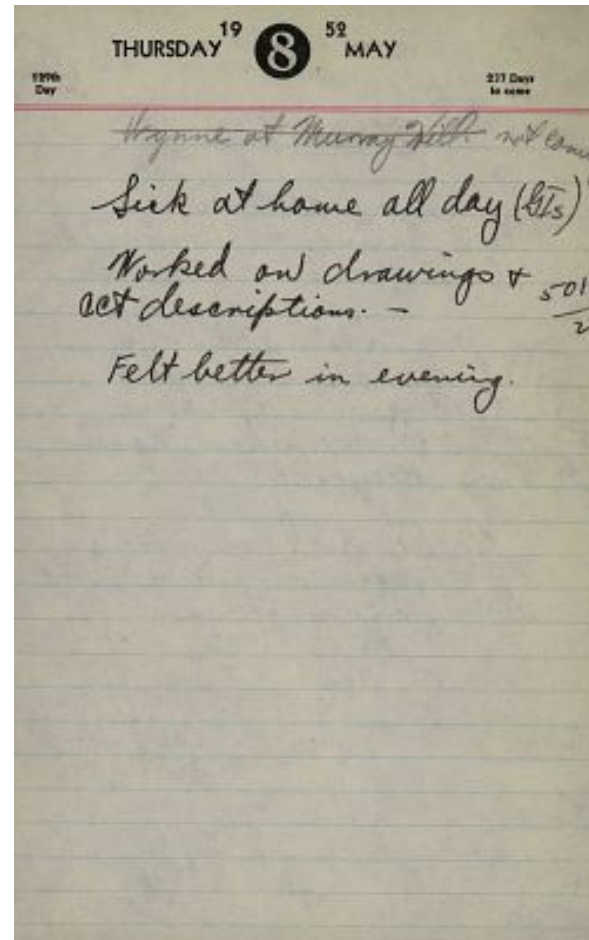 THURSDAY 19 8 52 MAY
129th Day
237 Days to come
Wynne at Murray Hill. not com
Sick at home all day (GIs)
Worked on drawings + 501
act descriptions. - 2
Felt better in evening.